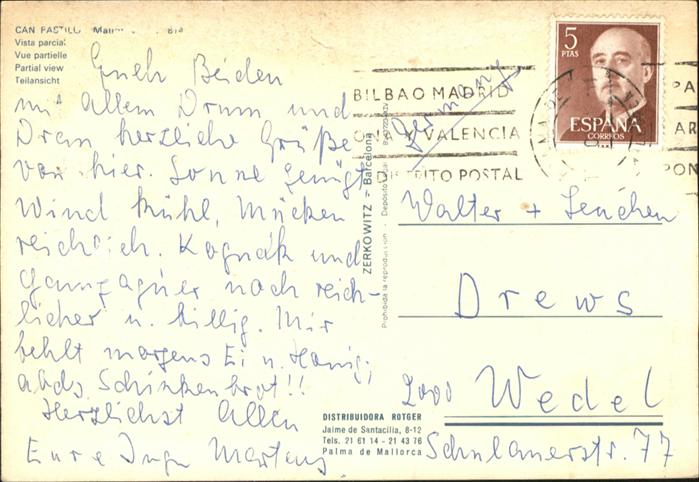 CAN PASTILLA
Vista parcial
Vue partielle
Partial view
Teilansicht
Euch Beiden
mit allem Drum und
Dran herzliche Grüße
von hier. Sonne genügt,
Wind kühl, Mücken
reichlich. Kognak und
noch reich-
licher u. billig. Mir
fehlt morgens Ei u. Honig,
abds. Schinkenbrot!!
Herzlichst allen
Eure Inge Martens
ZERKOWITZ - Barcelona
Prohibida la reproducción - Depósito Legal
DISTRIBUIDORA ROTGER
Jaime de Santacilia, 8-12
Tels. 21 61 14 - 21 43 76
Palma de Mallorca
5
PTAS
ESPAÑA
CORREOS
BILBAO MADRID
Y VALENCIA
DISTRITO POSTAL
Germany
Walter + Lenchen
Drews
2000 Wedel
Schulauerstr. 77